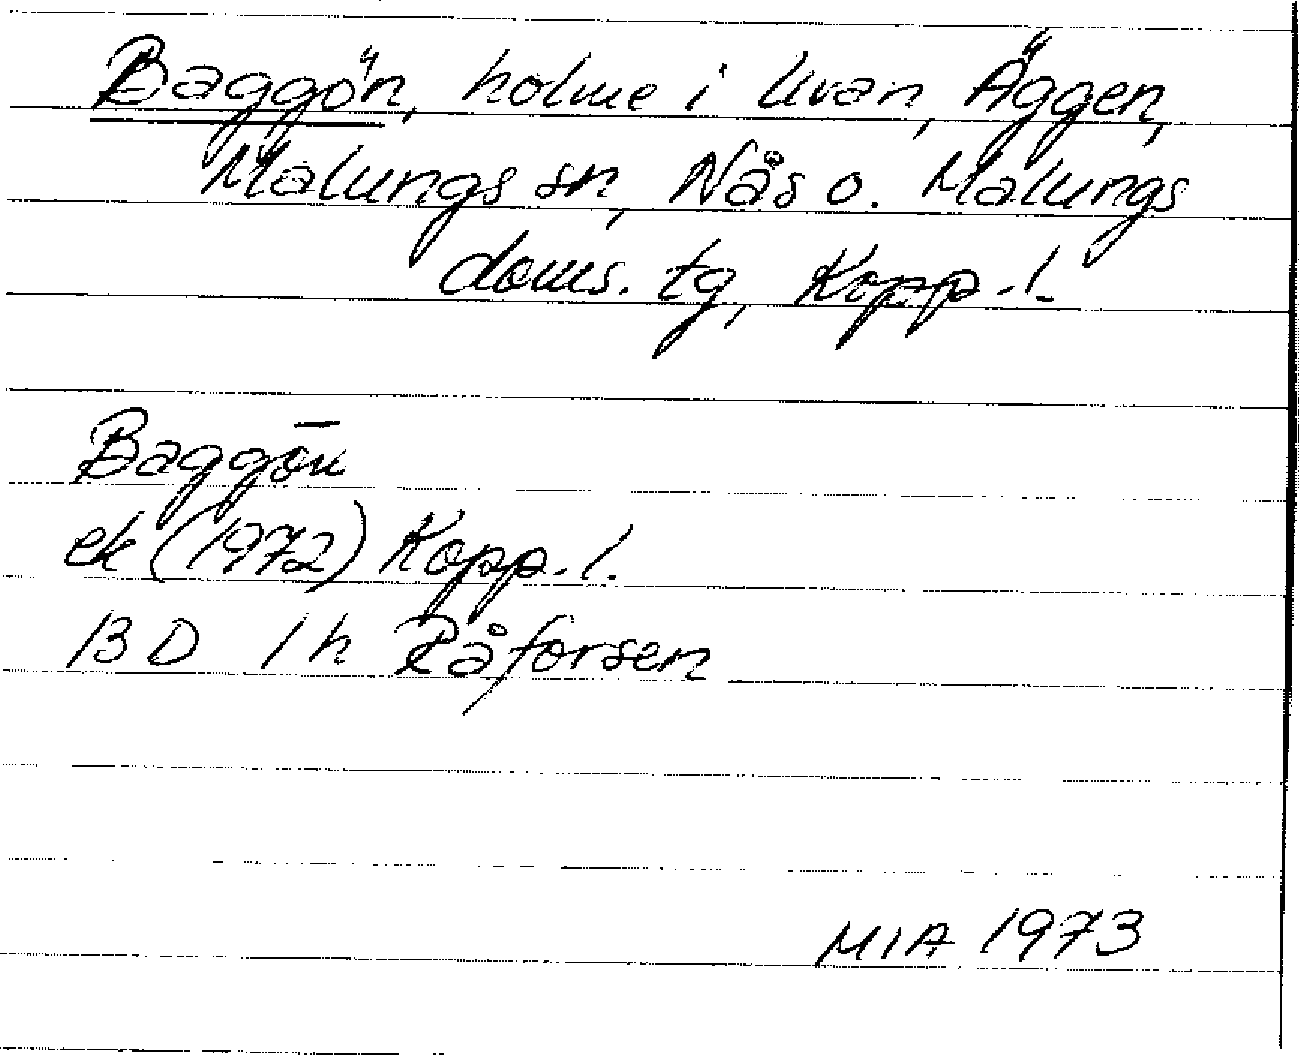 Baggön, holme i Uvan, Äggen,
Malungs sn, Nås o. Malungs
doms. tg, Kopp. l.
Baggön
ek (1972) Kopp. l.
13 D 1 h Råforsen
MIA 1973